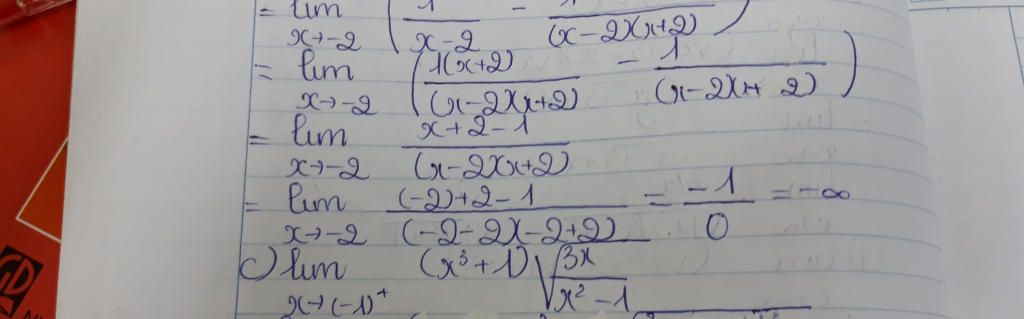 = lim x→-2 (1/(x-2) - 1/((x-2)(x+2)))
= lim x→-2 (1(x+2)/((x-2)(x+2)) - 1/((x-2)(x+2)))
= lim x→-2 (x+2-1)/((x-2)(x+2))
= lim x→-2 ((-2)+2-1)/((-2-2)(-2+2)) = -1/0 = -∞
c) lim x→(-1)⁺ (x³+1)√(3x/(x²-1))